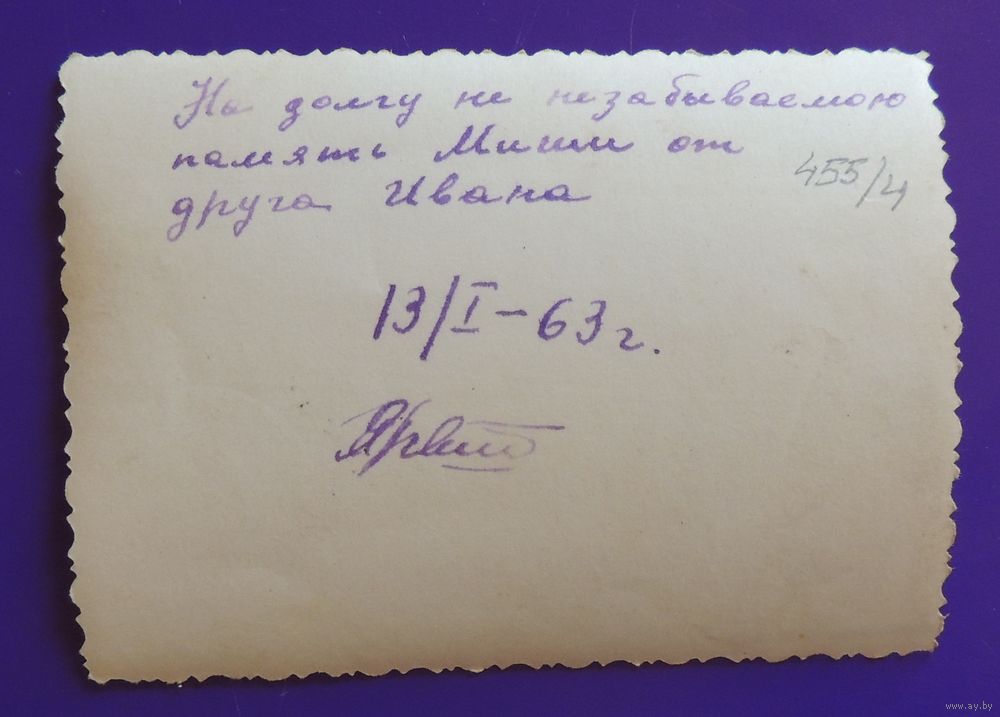 На долгу не незабываемою
память Миши от
друга Ивана
455/4
13/I-63г.
www.ay.by